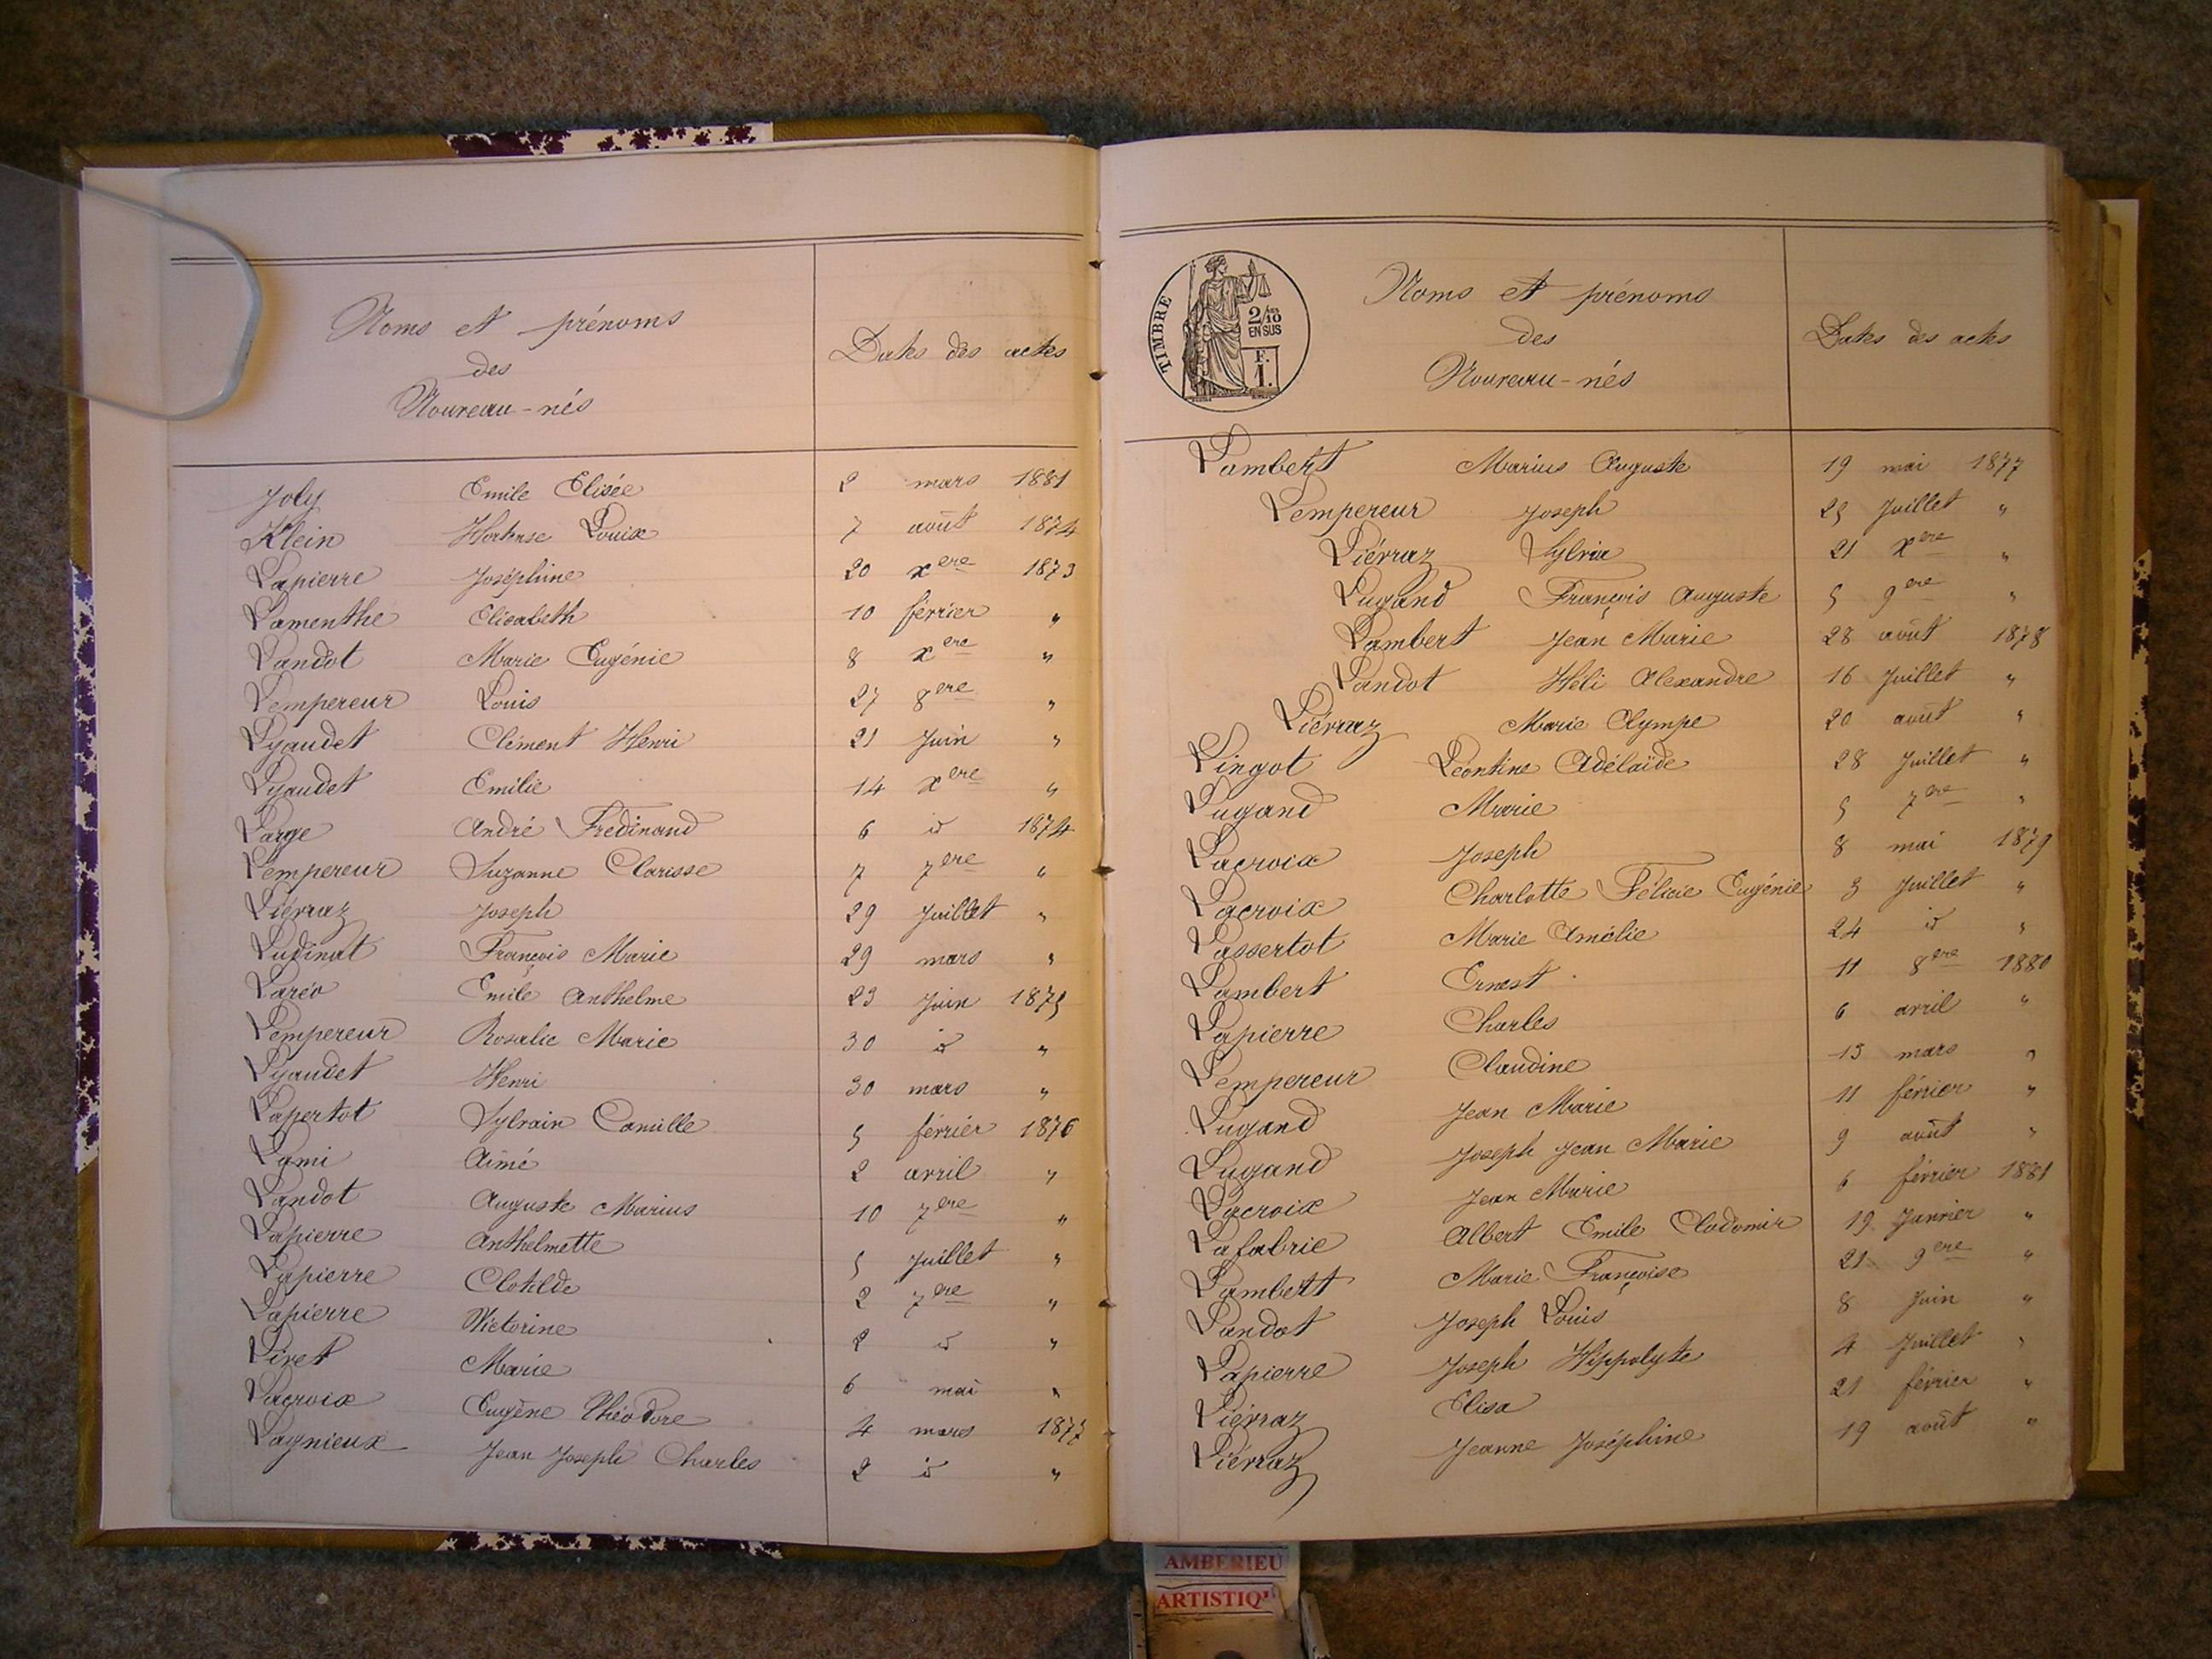 Noms et prénoms
des
Nouveau-nés
Dates des actes
Joly Emile Elisée 2 mars 1881
Klein Hortense Louise 7 août 1874
Lapierre Joséphine 20 xere 1873
Lamenthe Elisabeth 10 février "
Landot Marie Eugénie 8 xere "
Lempereur Louis 27 8ere "
Lyaudet Clément Henri 21 Juin "
Lyaudet Emilie 14 xere "
Large André Fredinand 6 id 1874
Lempereur Suzanne Clarisse 7 7ere "
Liérraz Joseph 29 Juillet "
Ludinat François Marie 29 mars "
Laréo Emile Anthelme 23 Juin 1875
Lempereur Rosalie Marie 30 id "
Lyaudet Henri 30 mars "
Lapertot Sylvain Camille 5 février 1876
Lami Aimé 2 avril "
Landot Auguste Marius 10 7ere "
Lapierre Anthelmette 5 Juillet "
Lapierre Clotilde 2 7ere "
Lapierre Victorine 2 id "
Livet Marie 6 mai "
Lacroix Eugène Théodore 4 mars 1877
Lagnieux Jean Joseph Charles 2 id "
TIMBRE
2/10
EN SUS
F.
1.
Noms et prénoms
des
Nouveau-nés
Dates des actes
Lambert Marius Auguste 19 mai 1877
Lempereur Joseph 25 Juillet "
Liérraz Sylvia 21 xere "
Lugand François Auguste 5 9ere "
Lambert Jean Marie 28 août 1878
Landot Héli Alexandre 16 Juillet "
Liérraz Marie Olympe 20 août "
Lingot Léontine Adélaïde 28 Juillet "
Lugand Marie 5 7ere "
Lacroix Joseph 8 mai 1879
Lacroix Charlotte Félicie Eugénie 3 Juillet "
Lassertot Marie Amélie 24 id "
Lambert Ernest 11 8ere 1880
Lapierre Charles 6 avril "
Lempereur Claudine 15 mars "
Lugand Jean Marie 11 février "
Lugand Joseph Jean Marie 9 août "
Lacroix Jean Marie 6 février 1881
Lafabrie Albert Emile Clodomir 19 Janvier "
Lambert Marie Françoise 21 9ere "
Landot Joseph Louis 8 Juin "
Lapierre Joseph Hippolyte 4 Juillet "
Liérraz Elisa 21 février "
Liérraz Jeanne Joséphine 19 août "
AMBERIEU